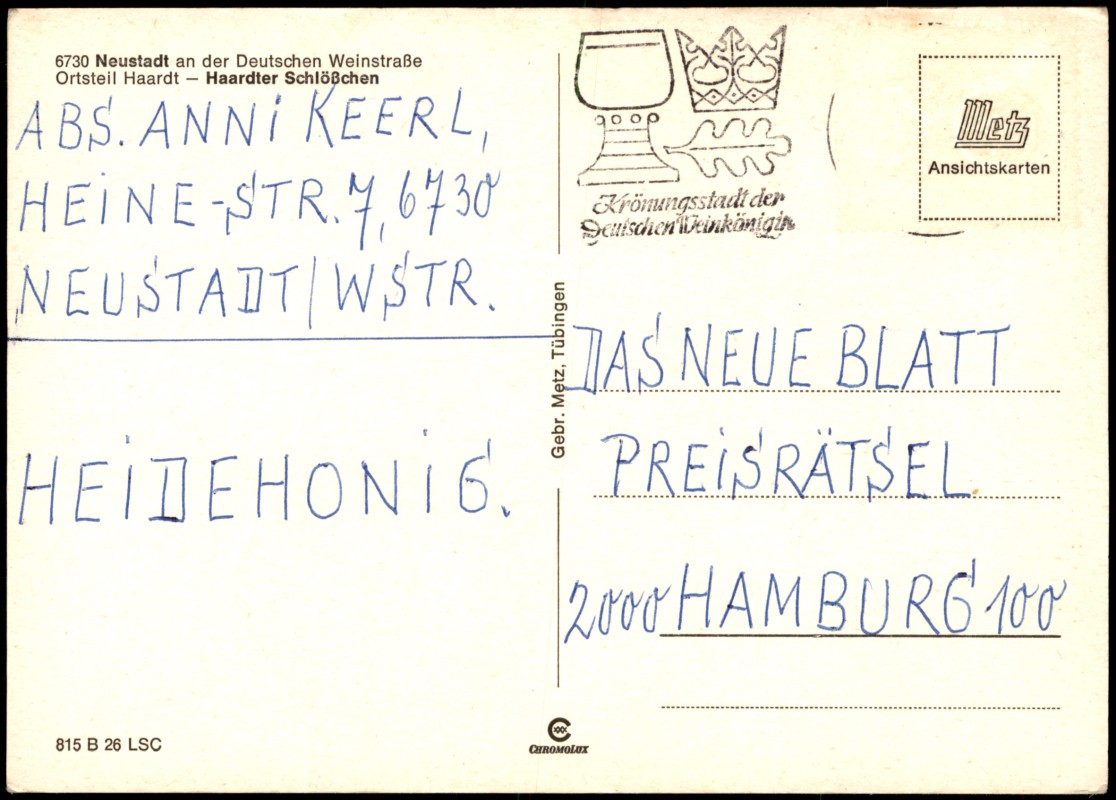 6730 Neustadt an der Deutschen Weinstraße
Ortsteil Haardt – Haardter Schlößchen
ABS. ANNI KEERL,
HEINE-STR. 7, 6730
NEUSTADT/WSTR.
HEIDEHONIG.
815 B 26 LSC
Gebr. Metz, Tübingen
CHROMOLUX
Krönungsstadt der
Deutschen Weinkönigin
Metz
Ansichtskarten
DAS NEUE BLATT
PREISRÄTSEL
2000 HAMBURG 100